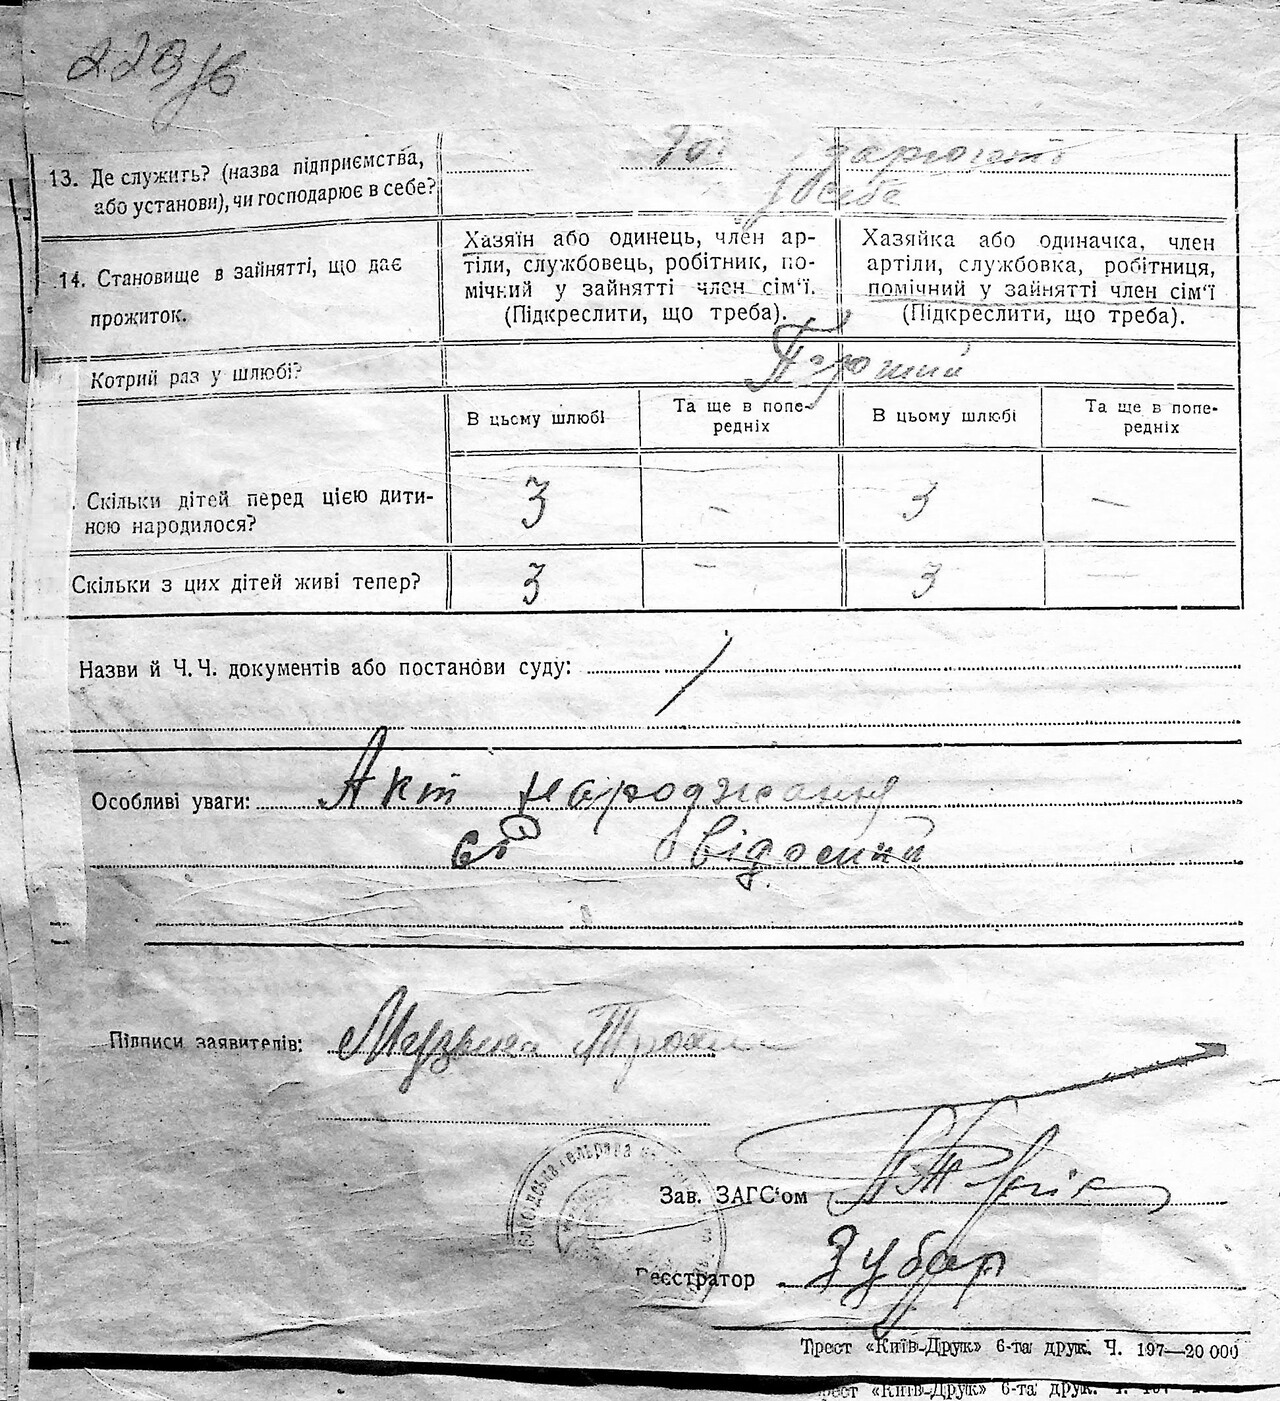 13. Де служить? (назва підприємства,
або установи), чи господарює в себе?
себе
14. Становище в зайнятті, що дає
прожиток.
Хазяїн або одинець, член ар-
тіли, службовець, робітник, по-
мічний у зайнятті член сім'ї.
(Підкреслити, що треба).
Хазяйка або одиначка, член
артіли, службовка, робітниця,
помічний у зайнятті член сім'ї
(Підкреслити, що треба).
Котрий раз у шлюбі?
В цьому шлюбі
Та ще в попе-
редніх
В цьому шлюбі
Та ще в попе-
редніх
Скільки дітей перед цією дити-
ною народилося?
3 - 3 —
Скільки з цих дітей живі тепер?
3 - 3 —
Назви й Ч. Ч. документів або постанови суду:
Особливі уваги: Акт народження
Підписи заявителів: Музыка
Зав. ЗАГС'ом
Реєстратор Зубар
Трест «Київ-Друк» 6-та друк. Ч. 197—20 000
«Київ-Друк» 6-та друк.